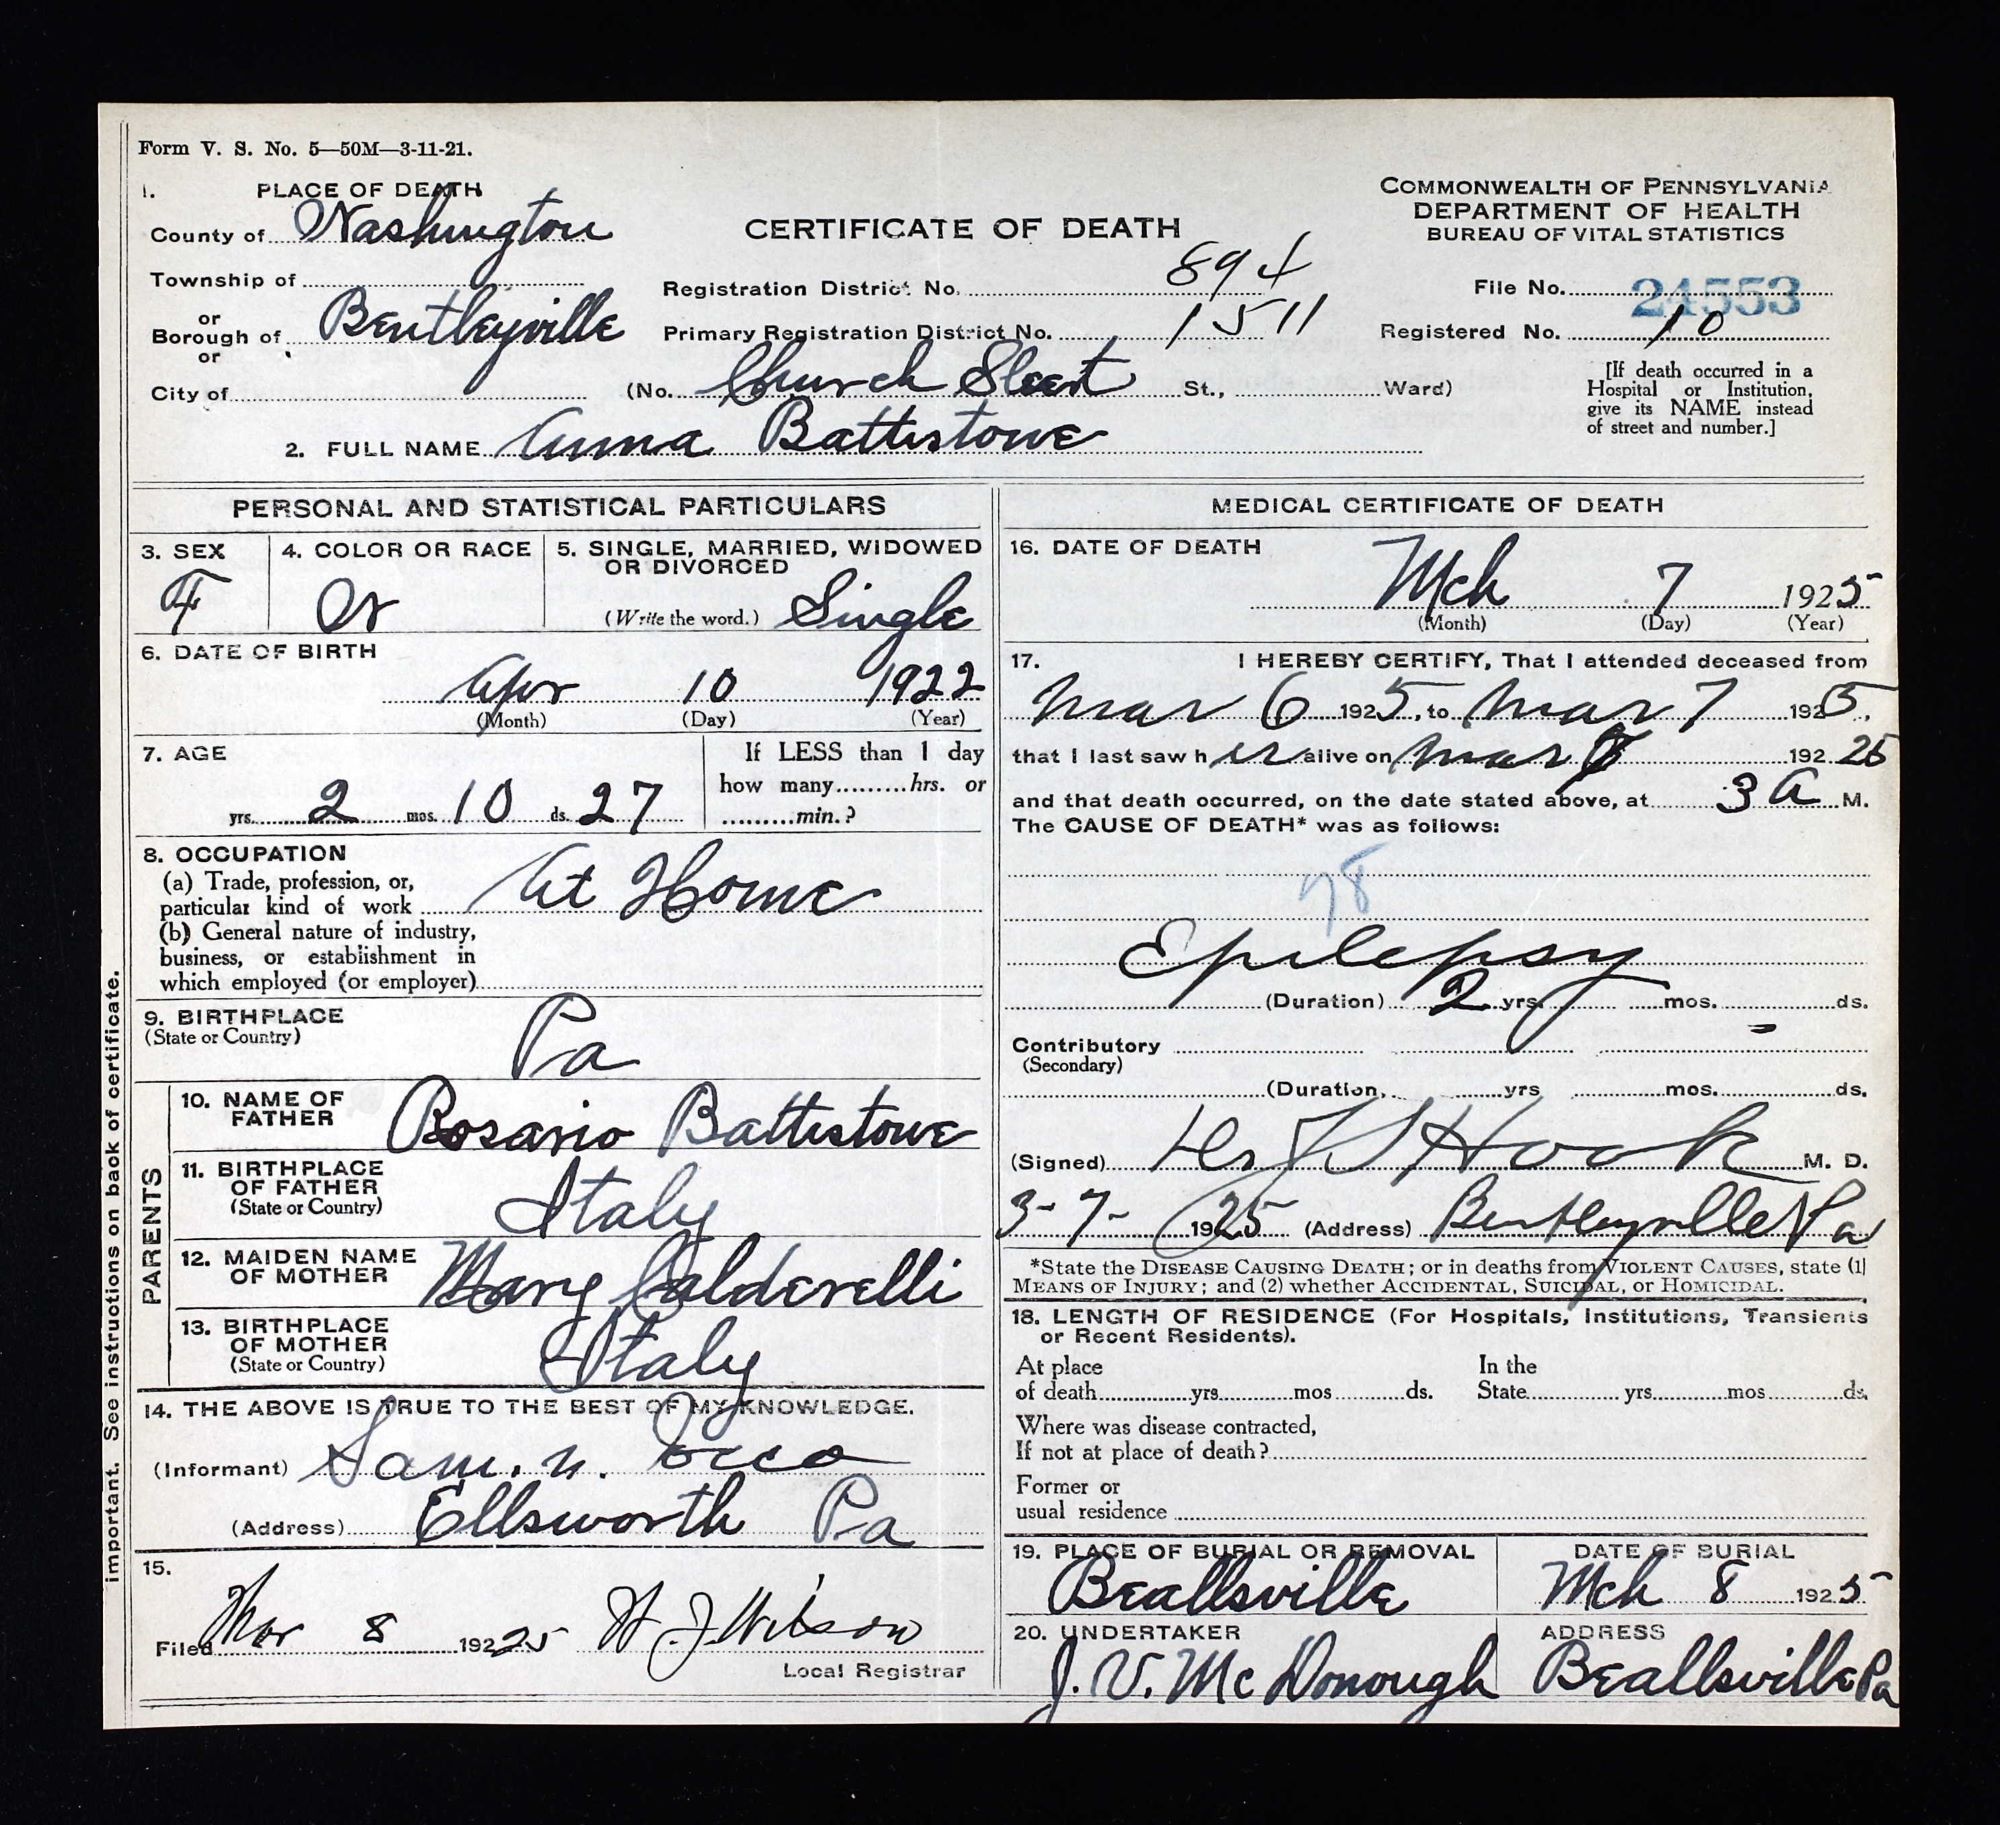 Form V. S. No. 5—50M—3-11-21.
1. PLACE OF DEATH
County of Washington
Township of
or
Borough of Bentleyville
or
City of
CERTIFICATE OF DEATH
Registration District No. 894
Primary Registration District No. 1511
(No. Church Street St., Ward)
COMMONWEALTH OF PENNSYLVANIA
DEPARTMENT OF HEALTH
BUREAU OF VITAL STATISTICS
File No. 24553
Registered No. 10
[If death occurred in a
Hospital or Institution,
give its NAME instead
of street and number.]
2. FULL NAME Anna Battistone
PERSONAL AND STATISTICAL PARTICULARS
3. SEX
F
4. COLOR OR RACE
W
5. SINGLE, MARRIED, WIDOWED
OR DIVORCED
(Write the word.) Single
6. DATE OF BIRTH
Apr 10 1922
(Month) (Day) (Year)
7. AGE
yrs. 2 mos. 10 ds. 27
If LESS than 1 day
how many hrs. or
min.?
8. OCCUPATION
(a) Trade, profession, or,
particular kind of work At Home
(b) General nature of industry,
business, or establishment in
which employed (or employer)
9. BIRTHPLACE
(State or Country)
Pa
PARENTS
10. NAME OF
FATHER
Rosario Battistone
11. BIRTHPLACE
OF FATHER
(State or Country)
Italy
12. MAIDEN NAME
OF MOTHER
Mary Calderelli
13. BIRTHPLACE
OF MOTHER
(State or Country)
Italy
14. THE ABOVE IS TRUE TO THE BEST OF MY KNOWLEDGE.
(Informant) Sam. N.
(Address) Ellsworth Pa
15.
Filed Mar 8 192 25 H. J. Wilson
Local Registrar
important. See instructions on back of certificate.
MEDICAL CERTIFICATE OF DEATH
16. DATE OF DEATH
Mch 7 1925
(Month) (Day) (Year)
17. I HEREBY CERTIFY, That I attended deceased from
Mar 6 1925, to Mar 7 1925.
that I last saw her alive on Mar 192 25
and that death occurred, on the date stated above, at 3 A M.
The CAUSE OF DEATH* was as follows:
78
Epilepsy
(Duration) 2 yrs. mos. ds.
Contributory
(Secondary)
(Duration, yrs mos. ds.
(Signed) Hook M. D.
3-7- 1925 (Address) Bentleyville Pa
*State the DISEASE CAUSING DEATH; or in deaths from VIOLENT CAUSES, state (1)
MEANS OF INJURY; and (2) whether ACCIDENTAL, SUICIDAL, or HOMICIDAL.
18. LENGTH OF RESIDENCE (For Hospitals, Institutions, Transients
or Recent Residents).
At place
of death yrs mos ds.
In the
State yrs. mos ds.
Where was disease contracted,
If not at place of death?
Former or
usual residence
19. PLACE OF BURIAL OR REMOVAL
Beallsville
DATE OF BURIAL
Mch 8 1925
20. UNDERTAKER
J. V. McDonough
ADDRESS
Beallsville Pa